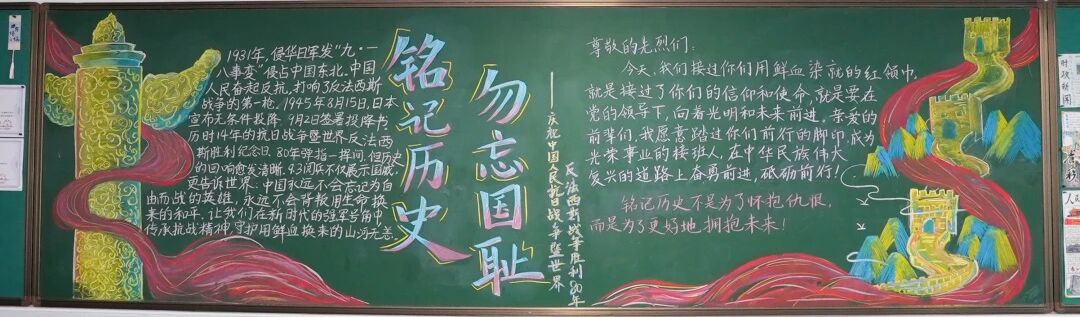 1931年,侵华日军发"九·一
八事变"侵占中国东北。中国
人民奋起反抗,打响了反法西斯
战争的第一枪。1945年8月15日,日本
宣布无条件投降。9月2日签署投降书。
历时14年的抗日战争暨世界反法西
斯胜利纪念日。80年弹指一挥间,但历史
的回响愈发清晰。9·3阅兵不仅展示国威,
更告诉世界:中国永远不会忘记为自
由而战的英雄,永远不会背叛用生命换
来的和平。让我们在新时代的强军号角中
传承抗战精神,守护用鲜血换来的山河无恙。
铭记历史
勿忘国耻
——庆祝中国人民抗日战争暨世界
反法西斯战争胜利80年
尊敬的先烈们:
今天,我们接过你们用鲜血染就的红领巾,
就是接过了你们的信仰和使命,就是要在
党的领导下,向着光明和未来前进。亲爱的
前辈们,我愿意踏过你们前行的脚印,成为
光荣事业的接班人,在中华民族伟大
复兴的道路上奋勇前进,砥砺前行!
铭记历史不是为了怀抱仇恨,
而是为了更好地拥抱未来!
时政新闻